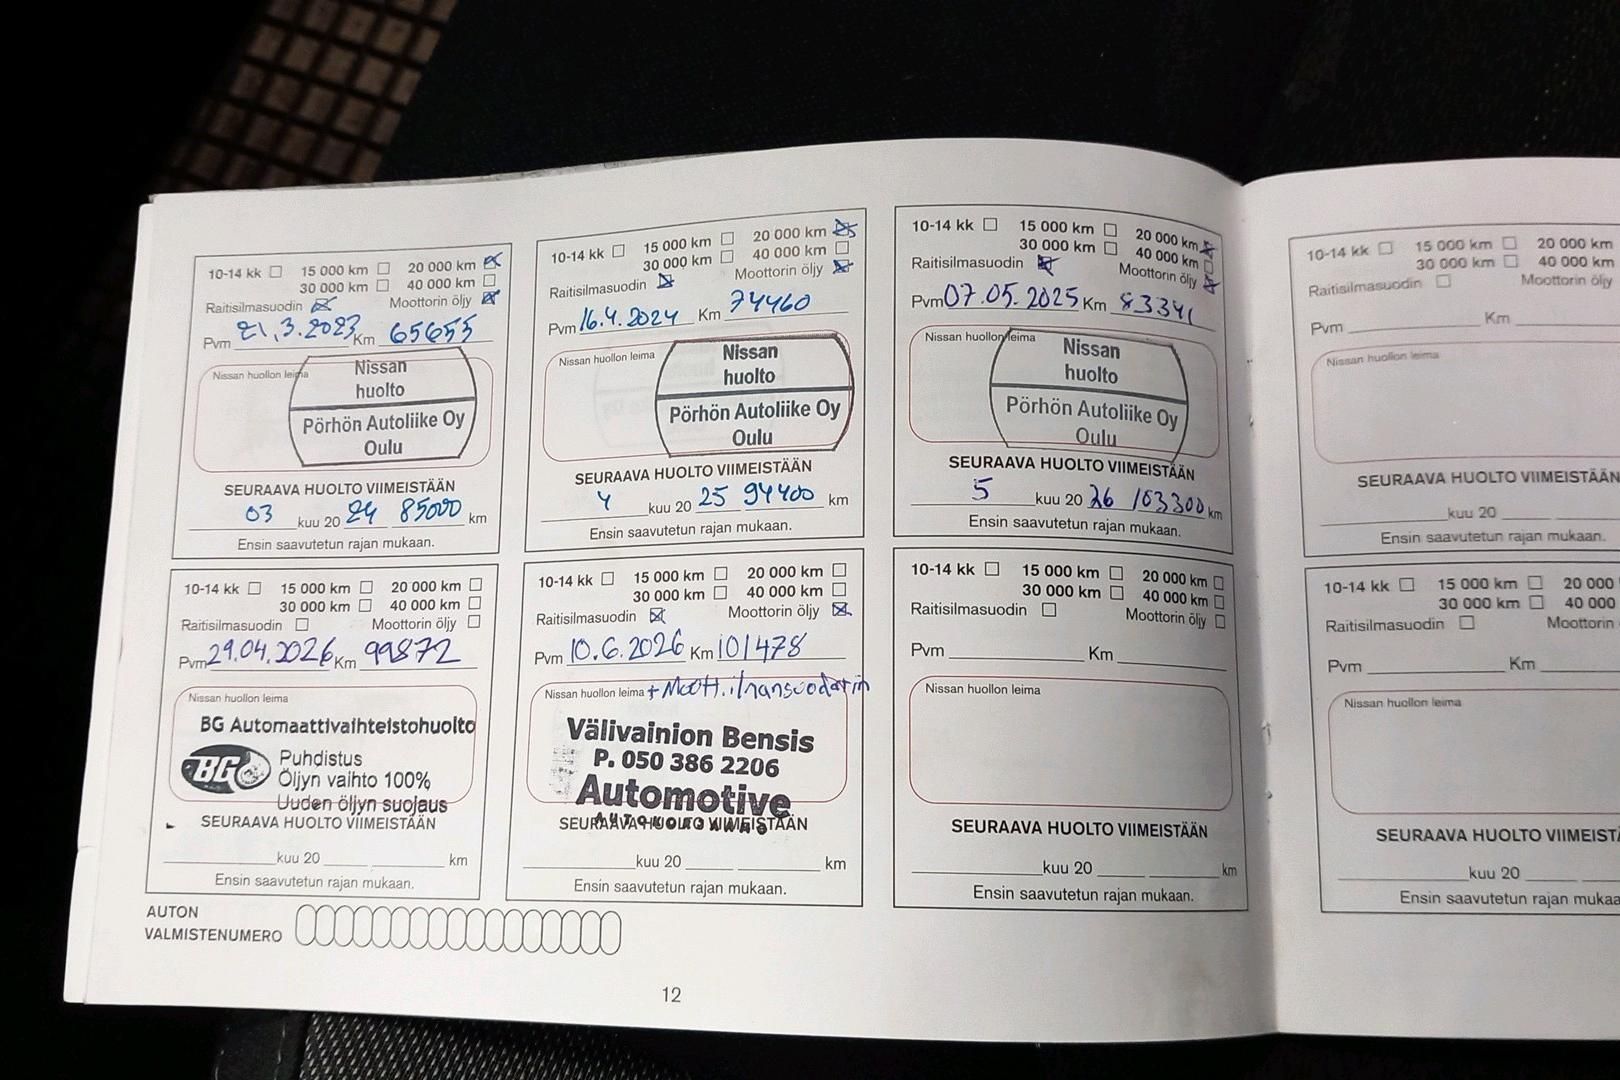 10-14 kk 15 000 km 20 000 km
30 000 km 40 000 km
Raitisilmasuodin Moottorin öljy
Pvm 21.3.2023 Km 65655
Nissan huollon leima
Nissan
huolto
Pörhön Autoliike Oy
Oulu
SEURAAVA HUOLTO VIIMEISTÄÄN
03 kuu 20 24 85000 km
Ensin saavutetun rajan mukaan.
10-14 kk 15 000 km 20 000 km
30 000 km 40 000 km
Raitisilmasuodin Moottorin öljy
Pvm 16.4.2024 Km 74460
Nissan huollon leima
Nissan
huolto
Pörhön Autoliike Oy
Oulu
SEURAAVA HUOLTO VIIMEISTÄÄN
4 kuu 20 25 94400 km
Ensin saavutetun rajan mukaan.
10-14 kk 15 000 km 20 000 km
30 000 km 40 000 km
Raitisilmasuodin Moottorin öljy
Pvm 07.05.2025 Km 83341
Nissan huollon leima
Nissan
huolto
Pörhön Autoliike Oy
Oulu
SEURAAVA HUOLTO VIIMEISTÄÄN
5 kuu 20 26 103300 km
Ensin saavutetun rajan mukaan.
10-14 kk 15 000 km 20 000 km
30 000 km 40 000 km
Raitisilmasuodin Moottorin öljy
Pvm 29.04.2026 Km 99872
Nissan huollon leima
BG Automaattivaihteistohuolto
BG
Puhdistus
Öljyn vaihto 100%
Uuden öljyn suojaus
SEURAAVA HUOLTO VIIMEISTÄÄN
kuu 20 km
Ensin saavutetun rajan mukaan.
10-14 kk 15 000 km 20 000 km
30 000 km 40 000 km
Raitisilmasuodin Moottorin öljy
Pvm 10.6.2026 Km 101478
Nissan huollon leima + Moott. ilmansuodatin
Välivainion Bensis
P. 050 386 2206
Automotive
SEURAAVA HUOLTO VIIMEISTÄÄN
kuu 20 km
Ensin saavutetun rajan mukaan.
10-14 kk 15 000 km 20 000 km
30 000 km 40 000 km
Raitisilmasuodin Moottorin öljy
Pvm Km
Nissan huollon leima
SEURAAVA HUOLTO VIIMEISTÄÄN
kuu 20 km
Ensin saavutetun rajan mukaan.
AUTON
VALMISTENUMERO
12
10-14 kk 15 000 km 20 000 km
30 000 km 40 000 km
Raitisilmasuodin Moottorin öljy
Pvm Km
Nissan huollon leima
SEURAAVA HUOLTO VIIMEISTÄÄN
kuu 20
Ensin saavutetun rajan mukaan.
10-14 kk 15 000 km 20 000
30 000 km 40 000
Raitisilmasuodin Moottorin
Pvm Km
Nissan huollon leima
SEURAAVA HUOLTO
kuu 20
Ensin saavutetun rajan